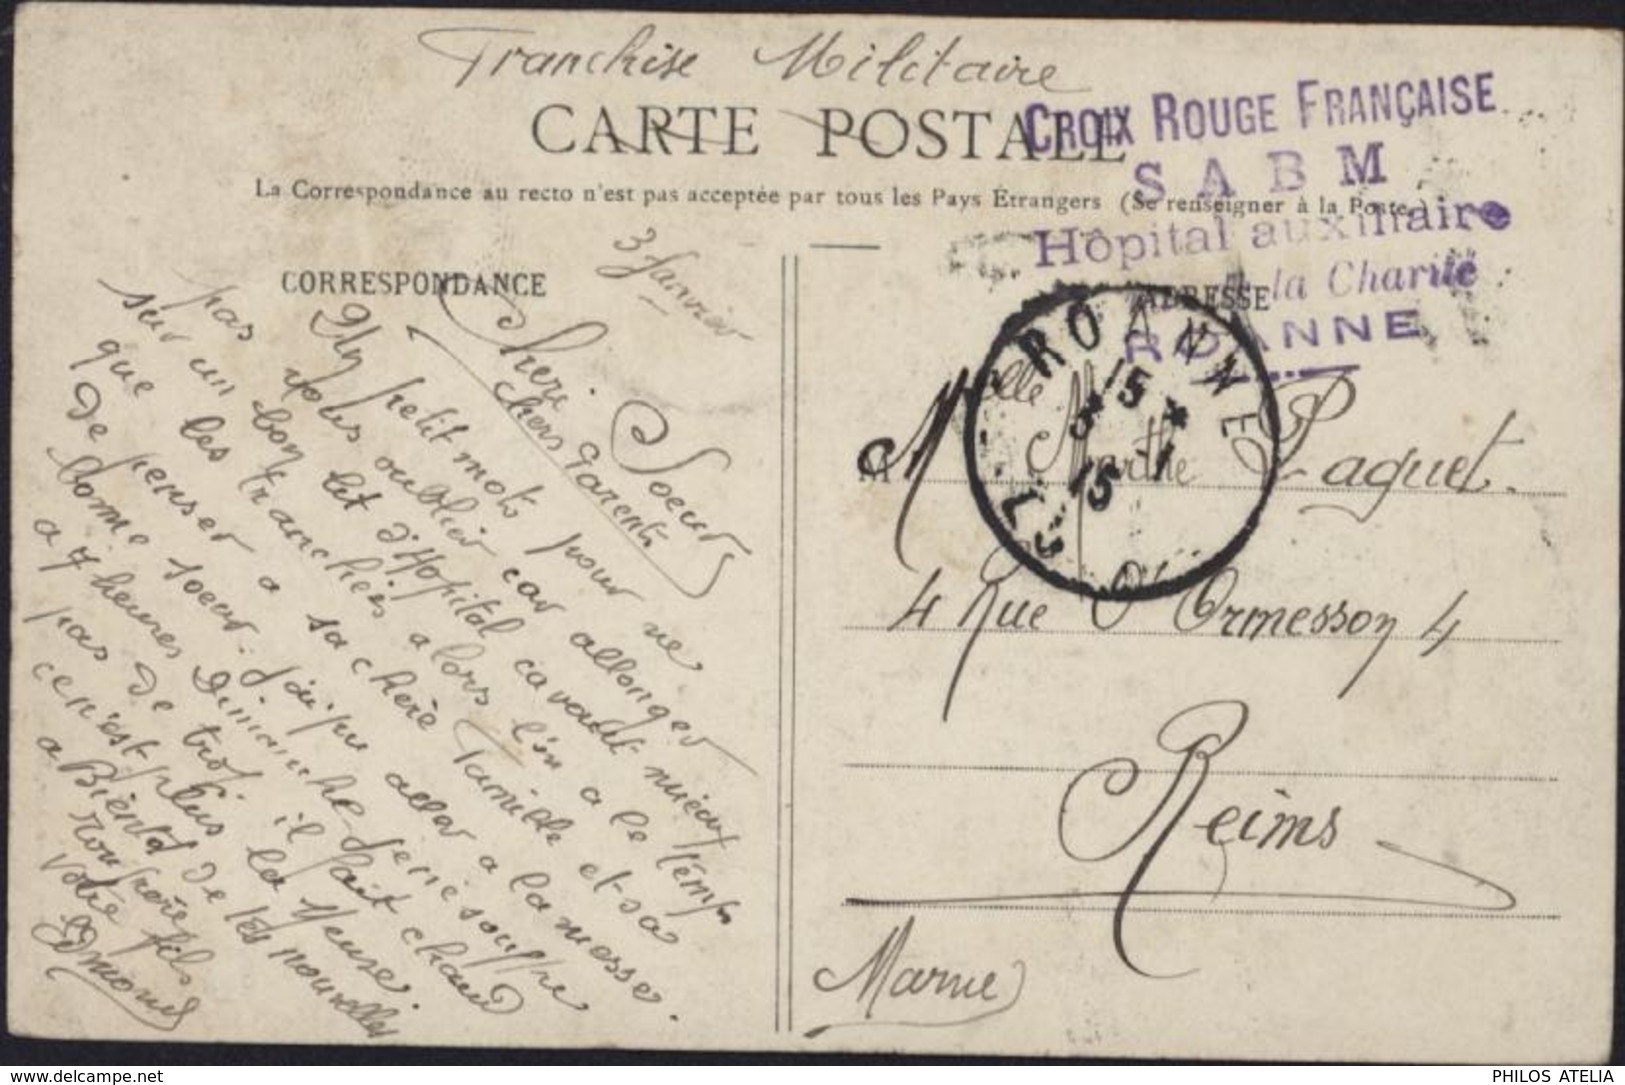 Franchise Militaire
CARTE POSTALE
CROIX ROUGE FRANÇAISE
S A B M
La Correspondance au recto n'est pas acceptée par tous les Pays Étrangers (Se renseigner à la Poste.)
Hôpital auxiliaire
la Charité
ROANNE
CORRESPONDANCE
ADRESSE
3 Janvier
Cheri Soeur
chers Parents
Un petit mots pour ne
pas vous oublier car allonger
sur un bon lit d'Hopital ca vaut mieux
que les tranchées alors l'on a le temps
de penser a sa chère Famille et sa
bonne soeur. J'ai pu aller a la messe.
a 7 heures Dimanche
pas de trop il fait chaud
ce n'est plus la Meuse.
a Bientot de tes nouvelles
ton frère
votre fils
Edmond
ROANNE
15 1
15
M elle Marthe Paquet.
4 Rue d'Ormesson 4
Reims
Marne
PHILOS ATELIA
www.delcampe.net